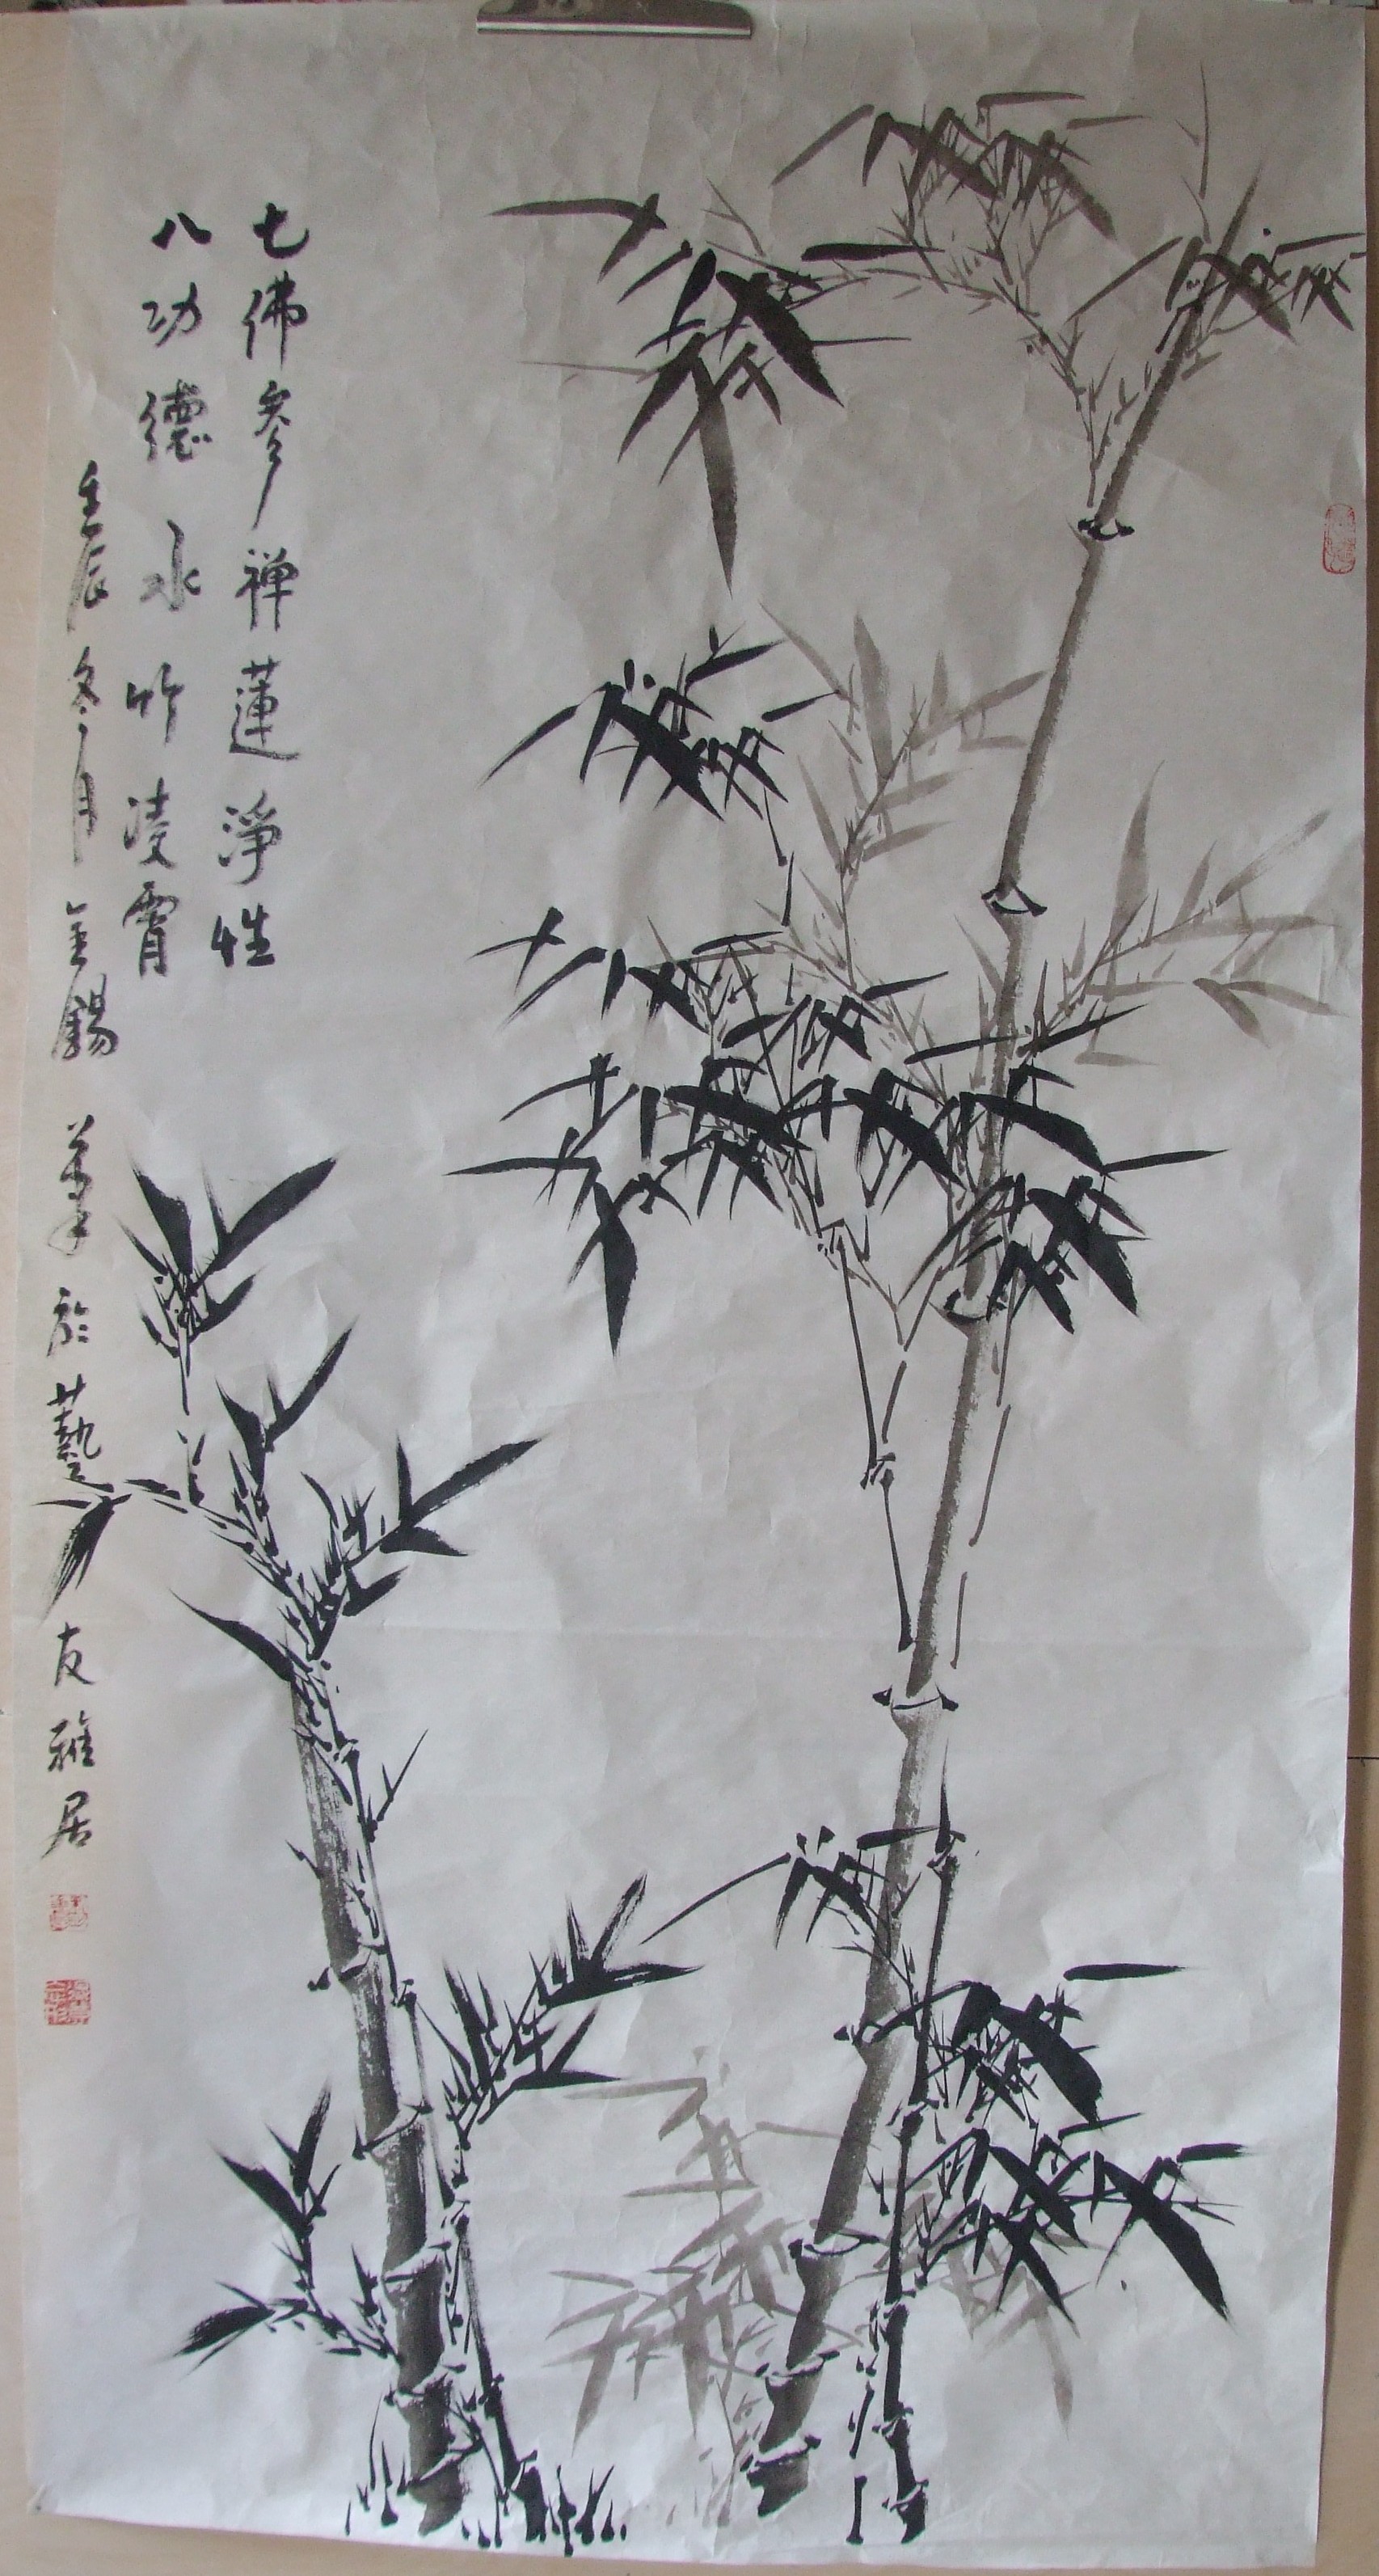 七佛參禅蓮淨性
八功德水竹凌霄
壬辰冬月金錫筆於藝友雅居